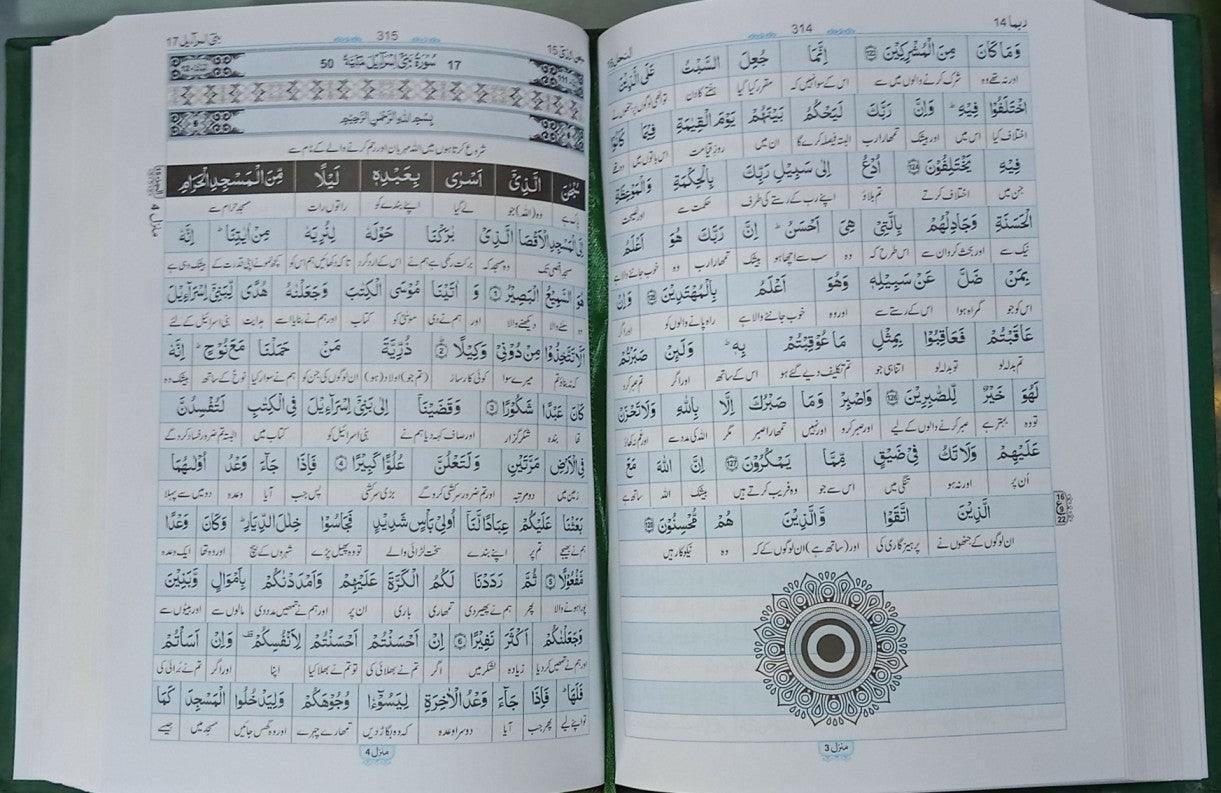 ربما 14
314
النحل 16
وَمَا كَانَ مِنَ الْمُشْرِكِيْنَ ﴿123﴾ اِنَّمَا جُعِلَ السَّبْتُ عَلَى الَّذِيْنَ
اور نہ تھے وہ شرک کرنے والوں میں سے اس کے سوا نہیں کہ مقرر کیا گیا ہفتے کا دن
اخْتَلَفُوْا فِيْهِ ؕ وَاِنَّ رَبَّكَ لَيَحْكُمُ بَيْنَهُمْ يَوْمَ الْقِيٰمَةِ فِيْمَا كَانُوْا
اختلاف کیا اس میں اور بیشک تمھارا رب البتہ فیصلہ کرے گا ان میں روز قیامت اس بات میں وہ تھے
فِيْهِ يَخْتَلِفُوْنَ ﴿124﴾ اُدْعُ اِلٰى سَبِيْلِ رَبِّكَ بِالْحِكْمَةِ وَالْمَوْعِظَةِ
جس میں اختلاف کرتے تم بلاؤ اپنے رب کے رستے کی طرف حکمت سے اور نصیحت
الْحَسَنَةِ وَجَادِلْهُمْ بِالَّتِيْ هِيَ اَحْسَنُ ؕ اِنَّ رَبَّكَ هُوَ اَعْلَمُ
نیک سے اور بحث کرو ان سے اس طرح کہ وہ سب سے اچھا ہو بیشک تمھارا رب وہ خوب جاننے والا ہے
بِمَنْ ضَلَّ عَنْ سَبِيْلِهٖ وَهُوَ اَعْلَمُ بِالْمُهْتَدِيْنَ ﴿125﴾ وَاِنْ
اس کو جو گمراہ ہوا اس کے رستے سے اور وہ خوب جاننے والا ہے راہ پانے والوں کو اور اگر
عَاقَبْتُمْ فَعَاقِبُوْا بِمِثْلِ مَا عُوْقِبْتُمْ بِهٖ ؕ وَلَئِنْ صَبَرْتُمْ
تم بدلہ لو تو بدلہ لو اتنا ہی جو تم تکلیف دیے گئے ہو اس کے ساتھ اور اگر تم صبر کرو
لَهُوَ خَيْرٌ لِّلصّٰبِرِيْنَ ﴿126﴾ وَاصْبِرْ وَمَا صَبْرُكَ اِلَّا بِاللّٰهِ وَلَا تَحْزَنْ
تو وہ بہتر ہے صبر کرنے والوں کے لیے اور صبر کرو اور نہیں تمھارا صبر مگر اللہ کی مدد سے اور غم نہ کھاؤ
عَلَيْهِمْ وَلَا تَكُ فِيْ ضَيْقٍ مِّمَّا يَمْكُرُوْنَ ﴿127﴾ اِنَّ اللّٰهَ مَعَ
اُن پر اور نہ ہو تنگی میں اس سے جو وہ فریب کرتے ہیں بیشک اللہ ساتھ ہے
الَّذِيْنَ اتَّقَوْا وَّالَّذِيْنَ هُمْ مُّحْسِنُوْنَ ﴿128﴾
ان لوگوں کے جنھوں نے پرہیزگاری کی اور (ساتھ ہے) ان لوگوں کے کہ وہ نیکوکار ہیں
16
ع
9
22
منزل 3
315
بنیٓ اسرآءیل 17
17 سُوْرَةُ بَنِيْٓ اِسْرَآءِيْلَ 50
بِسْمِ اللّٰهِ الرَّحْمٰنِ الرَّحِيْمِ
شروع کرتا ہوں میں اللہ مہربان اور رحم کرنے والے کے نام سے
سُبْحٰنَ الَّذِيْٓ اَسْرٰى بِعَبْدِهٖ لَيْلًا مِّنَ الْمَسْجِدِ الْحَرَامِ
پاک ہے وہ (اللہ) جو لے گیا اپنے بندے کو راتوں رات مسجد حرام سے
اِلَى الْمَسْجِدِ الْاَقْصَا الَّذِيْ بٰرَكْنَا حَوْلَهٗ لِنُرِيَهٗ مِنْ اٰيٰتِنَا ؕ اِنَّهٗ
مسجد اقصیٰ تک وہ مسجد کہ برکت رکھی ہے ہم نے اس کے ارد گرد تا کہ دکھائیں ہم اس کو کچھ نمونے اپنی قدرت کے بیشک وہی ہے
هُوَ السَّمِيْعُ الْبَصِيْرُ ﴿1﴾ وَ اٰتَيْنَا مُوْسَى الْكِتٰبَ وَجَعَلْنٰهُ هُدًى لِّبَنِيْٓ اِسْرَآءِيْلَ
وہ سننے والا دیکھنے والا اور ہم نے دی موسیٰؑ کو کتاب اور ہم نے بنایا اسے ہدایت بنی اسرائیل کے لئے
اَلَّا تَتَّخِذُوْا مِنْ دُوْنِيْ وَكِيْلًا ﴿2﴾ ذُرِّيَّةَ مَنْ حَمَلْنَا مَعَ نُوْحٍ ؕ اِنَّهٗ
کہ نہ بناؤ تم میرے سوا کوئی کارساز (تم جو) اولاد (ہو) ان لوگوں کی جن کو ہم نے سوار کیا نوحؑ کے ساتھ بیشک وہ
كَانَ عَبْدًا شَكُوْرًا ﴿3﴾ وَقَضَيْنَآ اِلٰى بَنِيْٓ اِسْرَآءِيْلَ فِي الْكِتٰبِ لَتُفْسِدُنَّ
تھا بندہ شکر گزار اور صاف کہہ دیا ہم نے بنی اسرائیل کو کتاب میں البتہ تم ضرور فساد کرو گے
فِي الْاَرْضِ مَرَّتَيْنِ وَلَتَعْلُنَّ عُلُوًّا كَبِيْرًا ﴿4﴾ فَاِذَا جَآءَ وَعْدُ اُوْلٰىهُمَا
زمین میں دو مرتبہ اور تم ضرور سرکشی کرو گے بڑی سرکشی پس جب آیا وعدہ دو میں سے پہلا
بَعَثْنَا عَلَيْكُمْ عِبَادًا لَّنَآ اُولِيْ بَاْسٍ شَدِيْدٍ فَجَاسُوْا خِلٰلَ الدِّيَارِ ؕ وَكَانَ وَعْدًا
ہم نے بھیجے تم پر اپنے بندے سخت لڑائی والے تو وہ پھیل پڑے شہروں کے بیچ اور وہ تھا ایک وعدہ
مَّفْعُوْلًا ﴿5﴾ ثُمَّ رَدَدْنَا لَكُمُ الْكَرَّةَ عَلَيْهِمْ وَاَمْدَدْنٰكُمْ بِاَمْوَالٍ وَّبَنِيْنَ
پورا ہونے والا پھر ہم نے پھیر دی تمھاری باری ان پر اور ہم نے تمھیں مدد دی مالوں سے اور بیٹوں سے
وَجَعَلْنٰكُمْ اَكْثَرَ نَفِيْرًا ﴿6﴾ اِنْ اَحْسَنْتُمْ اَحْسَنْتُمْ لِاَنْفُسِكُمْ وَاِنْ اَسَاْتُمْ
اور ہم نے تمھیں کر دیا زیادہ لشکر میں اگر تم نے بھلائی کی تو تم نے بھلا کیا اپنا اور اگر تم نے بُرائی کی
فَلَهَا ؕ فَاِذَا جَآءَ وَعْدُ الْاٰخِرَةِ لِيَسُوْٓءٗا وُجُوْهَكُمْ وَلِيَدْخُلُوا الْمَسْجِدَ كَمَا
تو اپنے لیے پھر جب آیا دوسرا وعدہ کہ وہ بگاڑ دیں تمھارے چہرے اور وہ گھس جائیں مسجد میں جیسے
منزل 4